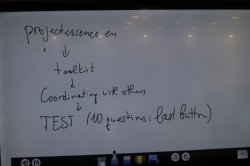 projectessence.eu
↓
toolkit
↓
Coordinating with others
↓
TEST (10 questions: last button)